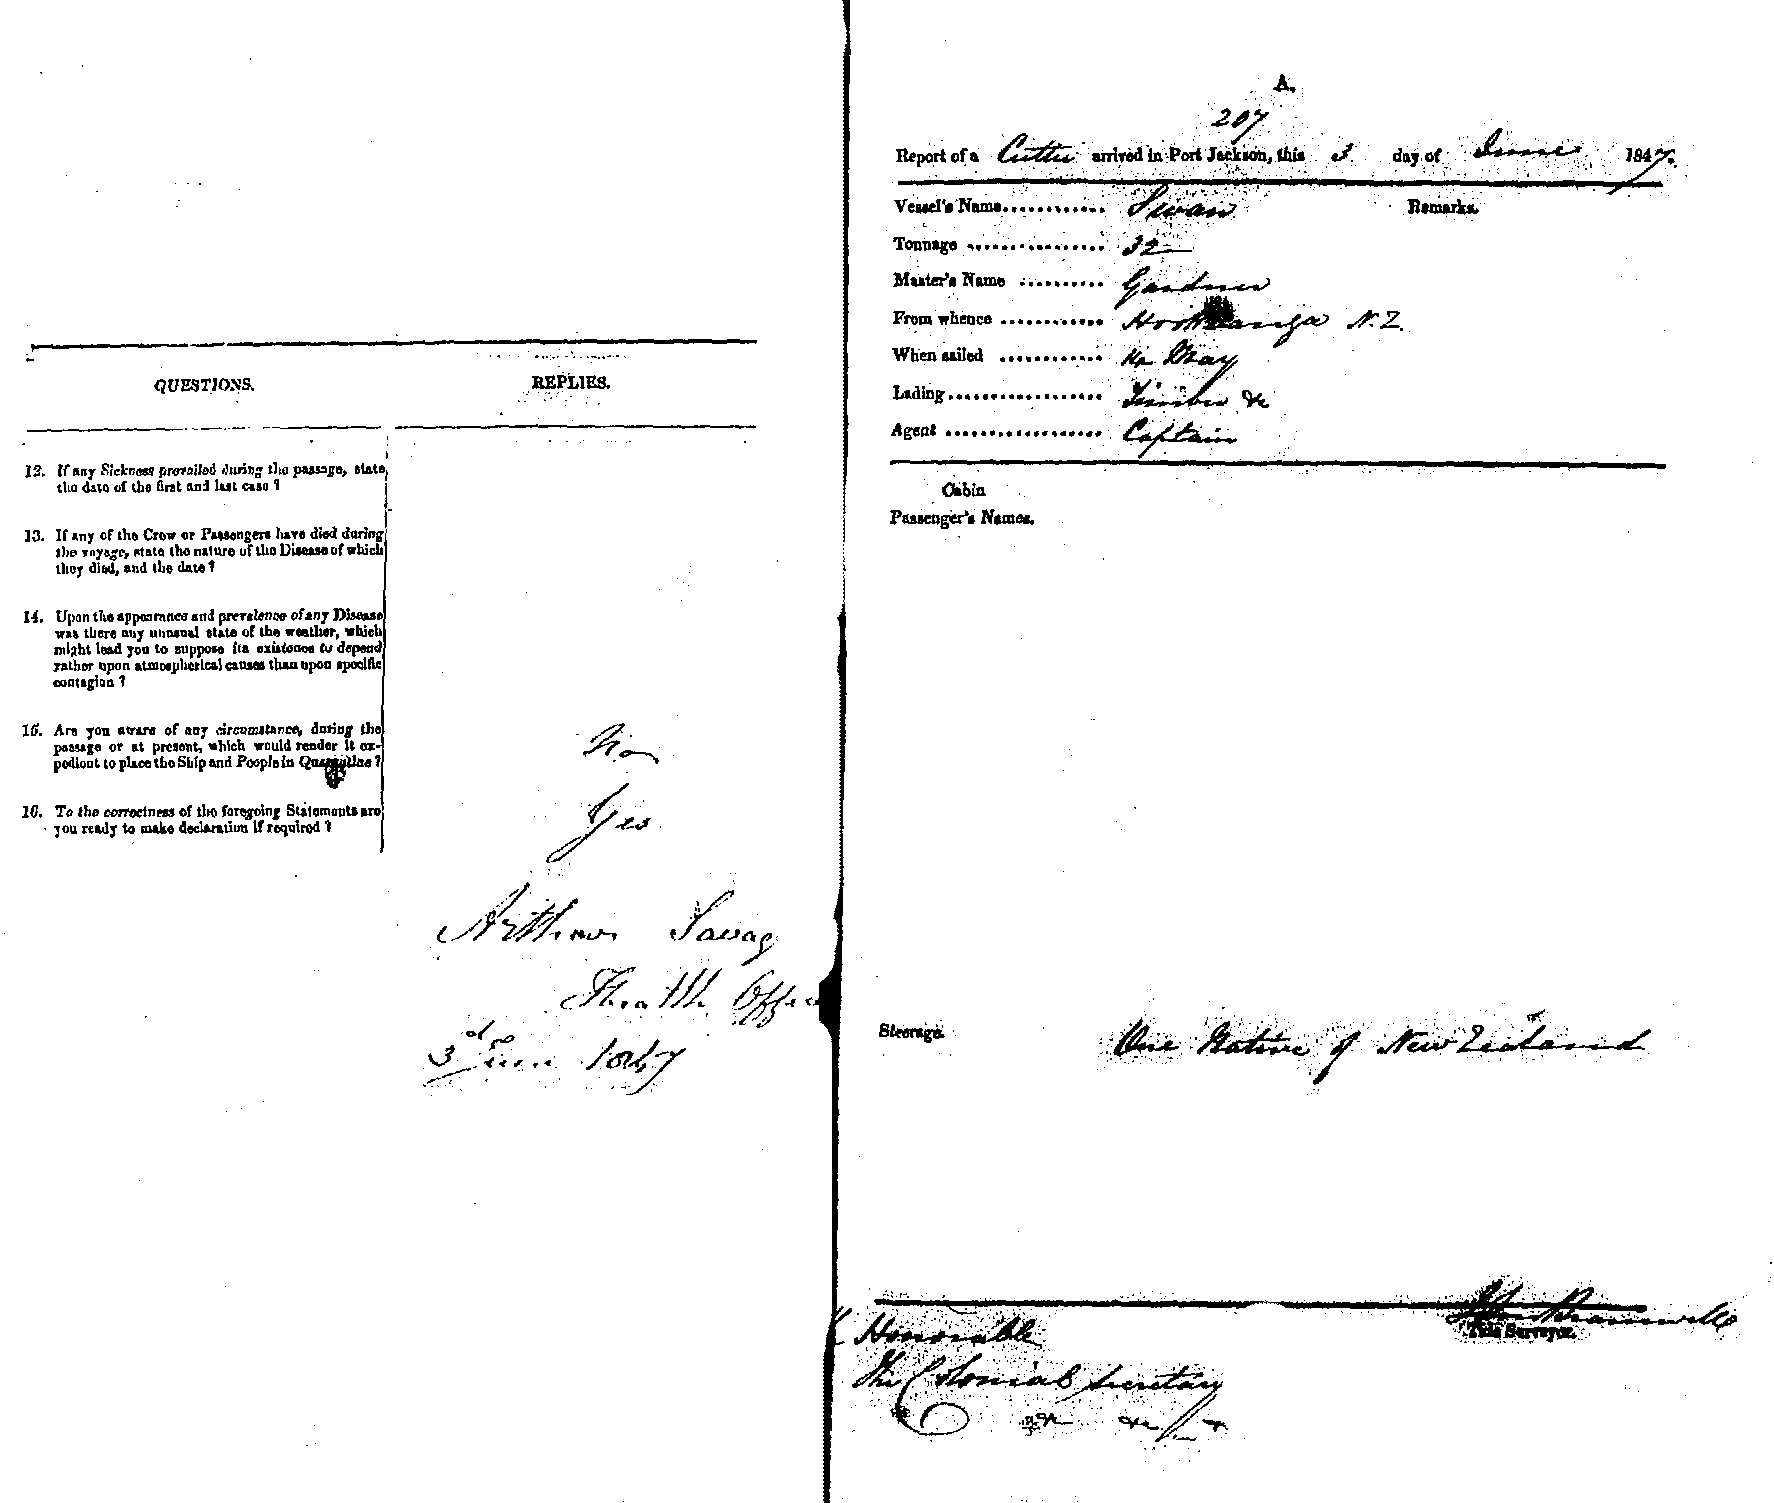 QUESTIONS.
REPLIES.
12. If any Sickness prevailed during the passage, state
the date of the first and last case ?
13. If any of the Crew or Passengers have died during
the voyage, state the nature of the Disease of which
they died, and the date ?
14. Upon the appearance and prevalence of any Disease
was there any unusual state of the weather, which
might lead you to suppose its existence to depend
rather upon atmospherical causes than upon specific
contagion ?
15. Are you aware of any circumstance, during the
passage or at present, which would render it ex-
pedient to place the Ship and People in Quarantine ?
No
16. To the correctness of the foregoing Statements are
you ready to make declaration if required ?
Yes
Arthur Savag
Health Offic
3d June 1847
A.
207
Report of a Cutter arrived in Port Jackson, this 3 day of June 1847.
Vessel's Name Swan
Remarks.
Tonnage 32
Master's Name Gardner
From whence Hookianga N.Z.
When sailed May
Lading Timber &c
Agent Captain
Cabin
Passenger's Names.
Steerage. One Native of New Zealand
John Bramwell
Tide Surveyor.
Honorable
The Colonial Secretary
&c &c &c